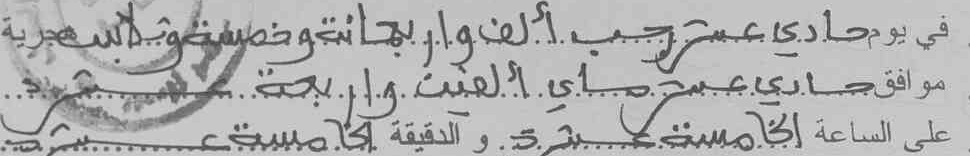 في يوم حادي عشر رجب ألف و اربعمائة و خمسة و ثلاثين هجرية
موافق حادي عشر ماي ألفين و اربعة عشرة
على الساعة الخامسة عشرة و الدقيقة الخامسة عشرة